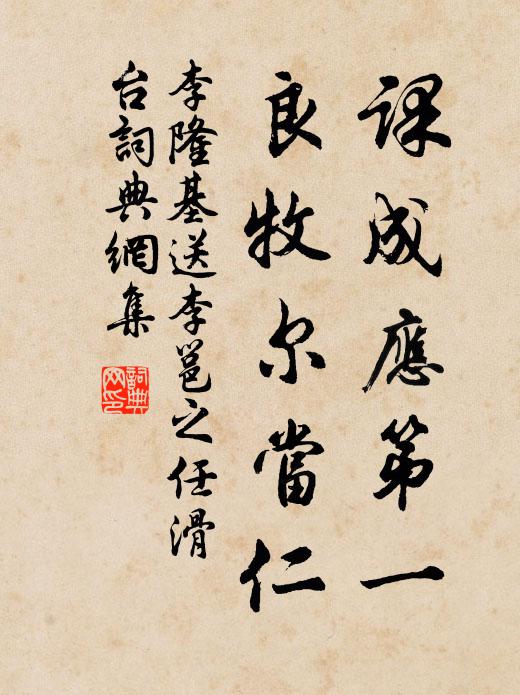 课成應第一
良牧尔當仁
李隆基送李邕之任滑
台詞典網集
詞典
网印